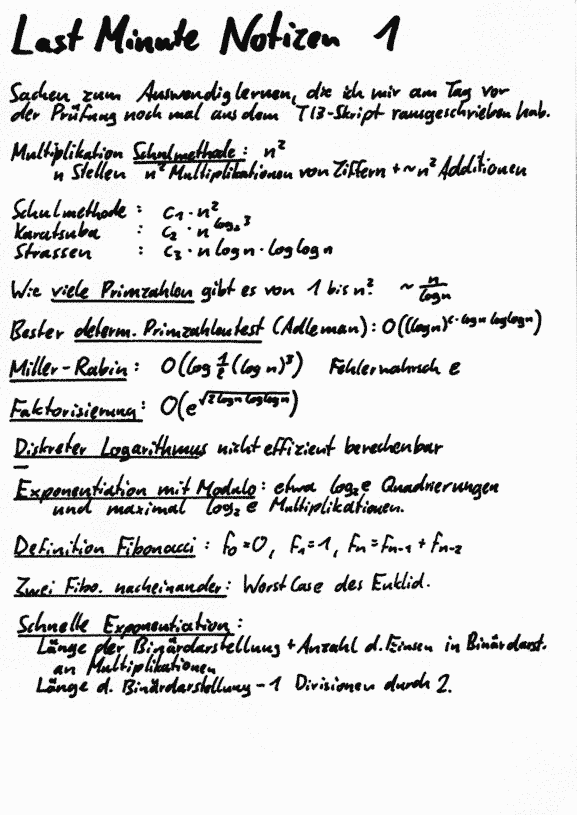 Last Minute Notizen 1
Sachen zum Auswendiglernen, die ich mir am Tag vor
der Prüfung noch mal aus dem TI3-Skript rausgeschrieben hab.
Multiplikation Schulmethode: n²
n Stellen n² Multiplikationen von Ziffern + ~n² Additionen
Schulmethode : C₁ · n²
Karatsuba : C₂ · n^log₂3
Strassen : C₃ · n log n · log log n
Wie viele Primzahlen gibt es von 1 bis n? ~ n/log n
Bester determ. Primzahltest (Adleman): O((log n)^c · log n log log n)
Miller-Rabin: O(log 1/ε (log n)³) Fehlerwahrsch ε
Faktorisierung: O(e^√2 log n log log n)
Diskreter Logarithmus nicht effizient berechenbar
Exponentiation mit Modulo: etwa log₂e Quadrierungen
und maximal log₂ e Multiplikationen.
Definition Fibonacci: f₀=0, F₁=1, Fn=Fn-1 + Fn-2
Zwei Fibo. nacheinander: Worst Case des Euklid.
Schnelle Exponentiation:
Länge der Binärdarstellung + Anzahl d. Einsen in Binärdarst.
an Multiplikationen
Länge d. Binärdarstellung - 1 Divisionen durch 2.